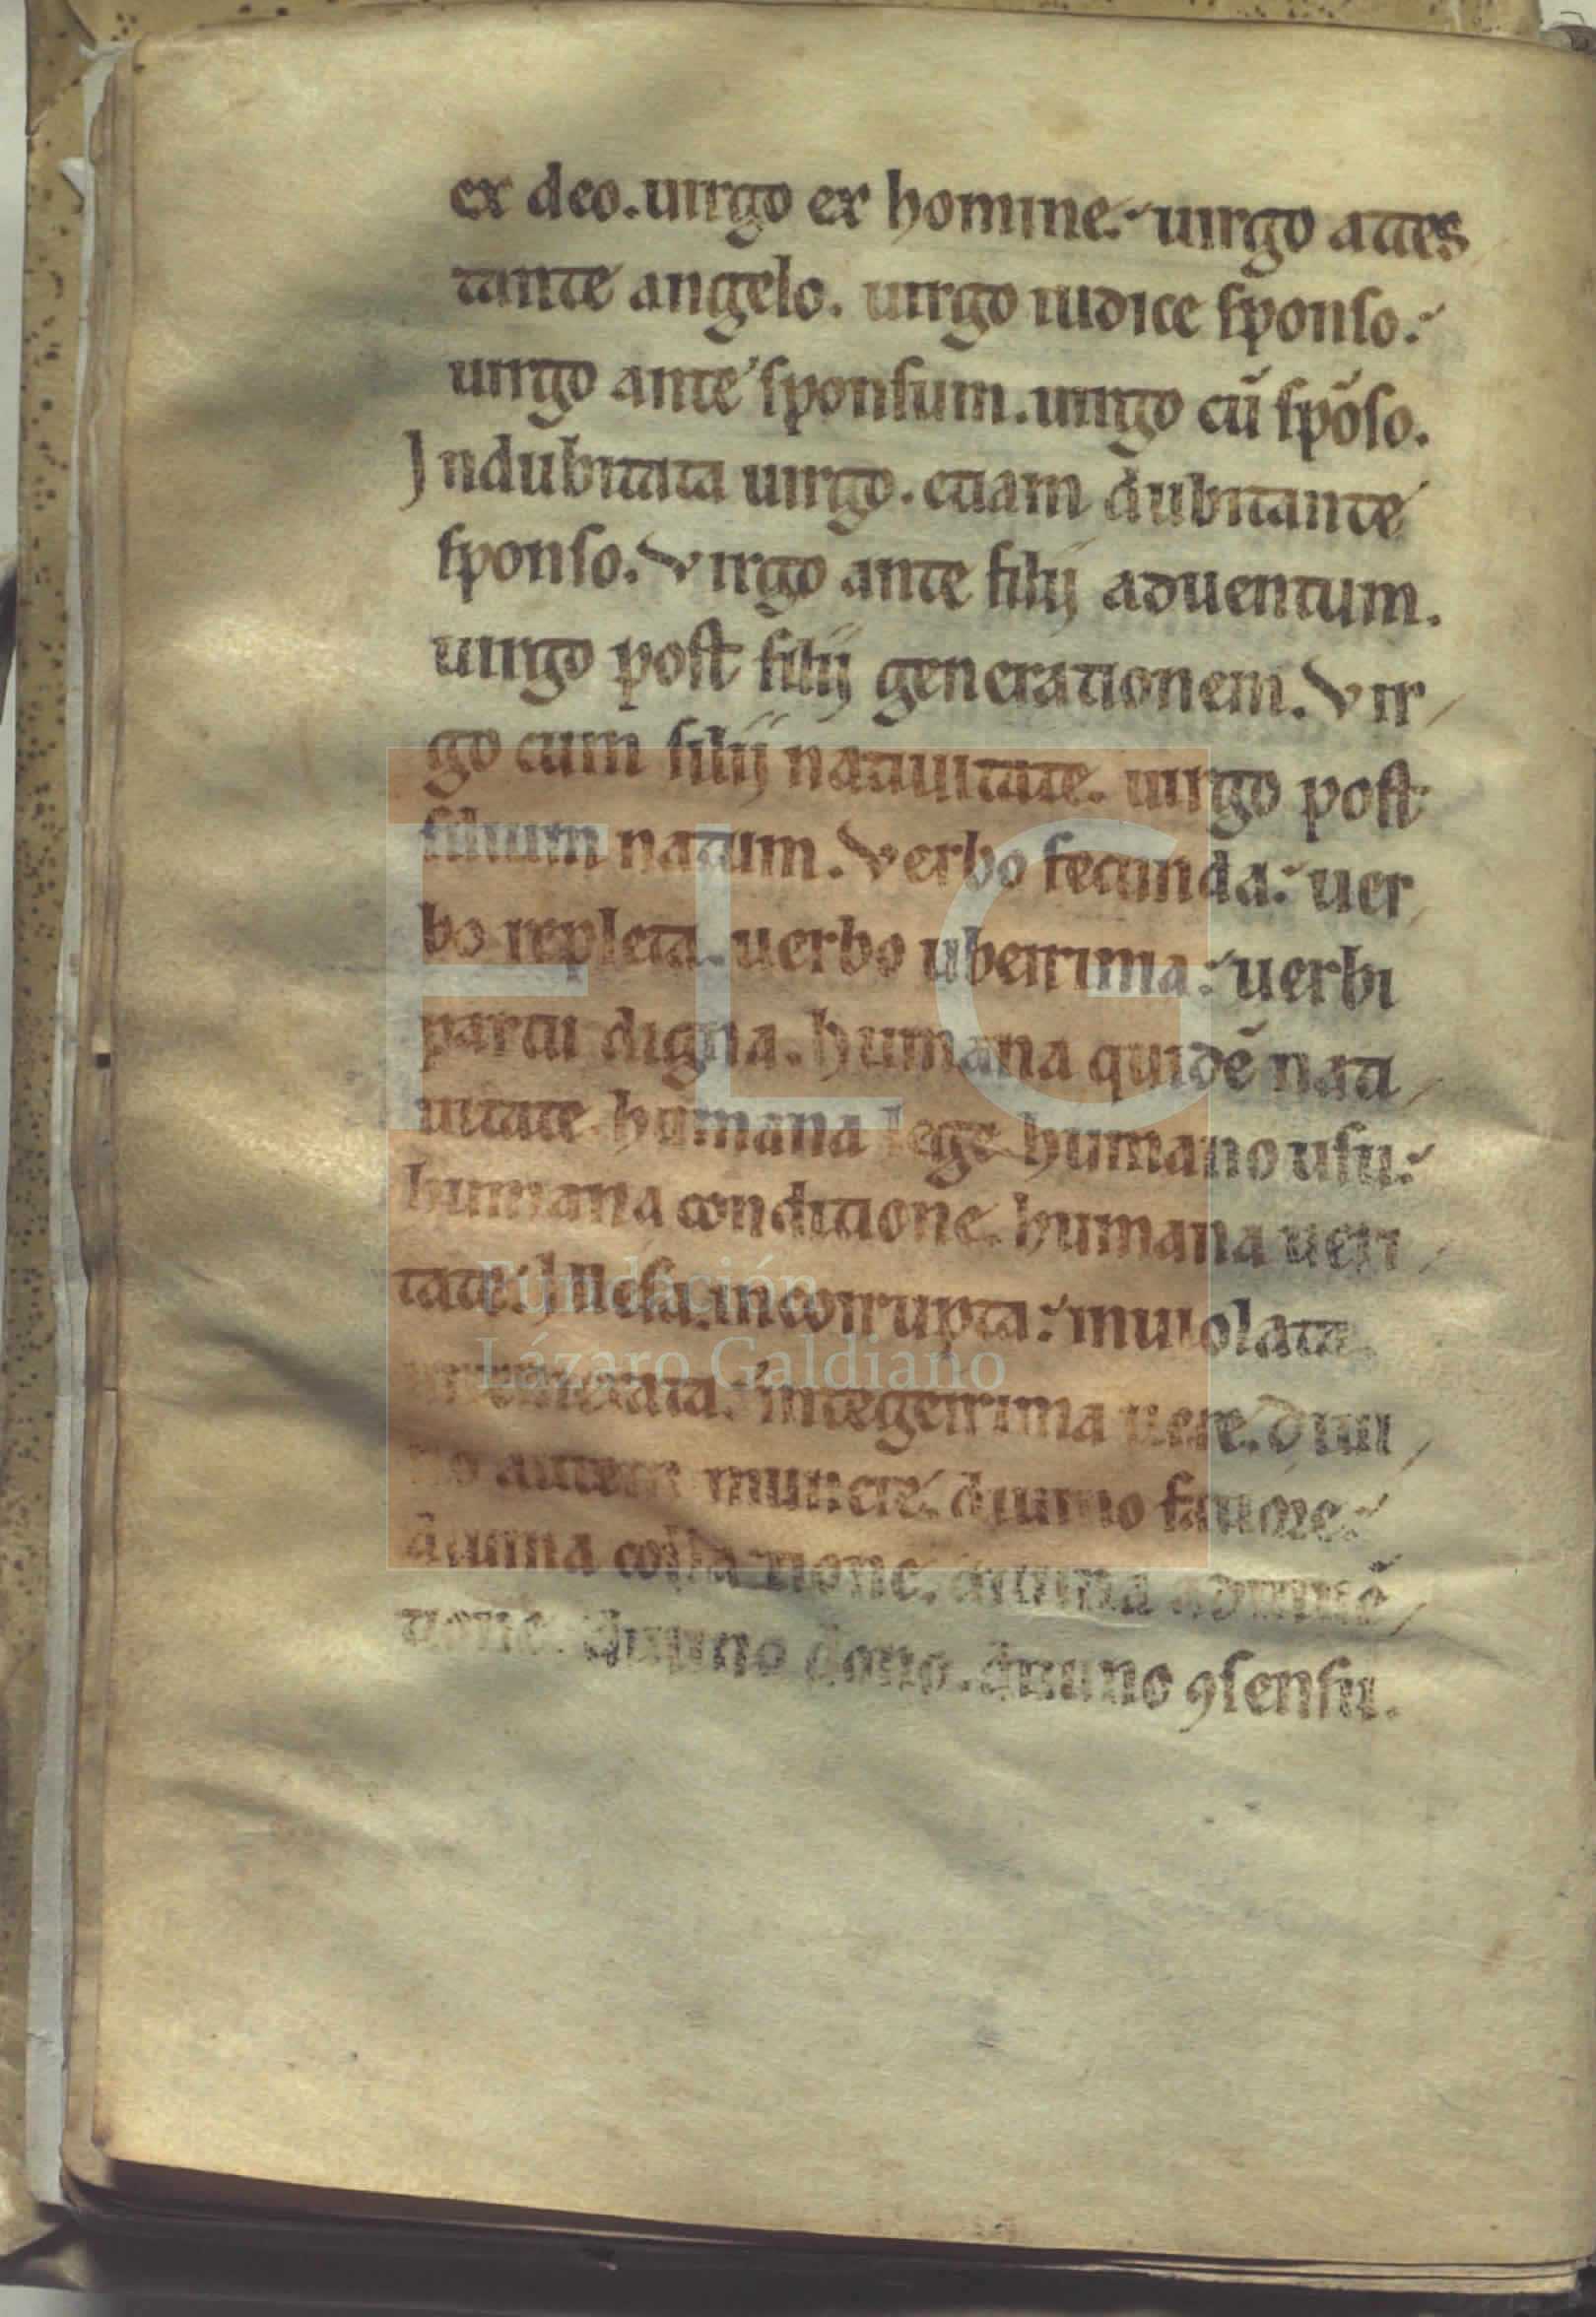 ex deo. uirgo ex homine. uirgo attes
tante angelo. uirgo iudice sponso.
uirgo ante sponsum. uirgo cū spōso.
Indubitata uirgo. etiam dubitante
sponso. Virgo ante filij aduentum.
uirgo post filij generationem. Vir
go cum filij natiuitate. uirgo post
filium natum. Verbo fecunda. uer
bo repleta. uerbo uberrima. uerbi
partu digna. humana quidē nati
uitate humana lege humano usu.
humana conditione. humana ueri
tate. Illesa. incorrupta. inuiolata
integerrima uere. diui
no autem munere. diuino fauore.
diuina collatione. diuina
tione. diuino dono. diuino ꝯsensu.
FLG
Fundación
Lázaro Galdiano